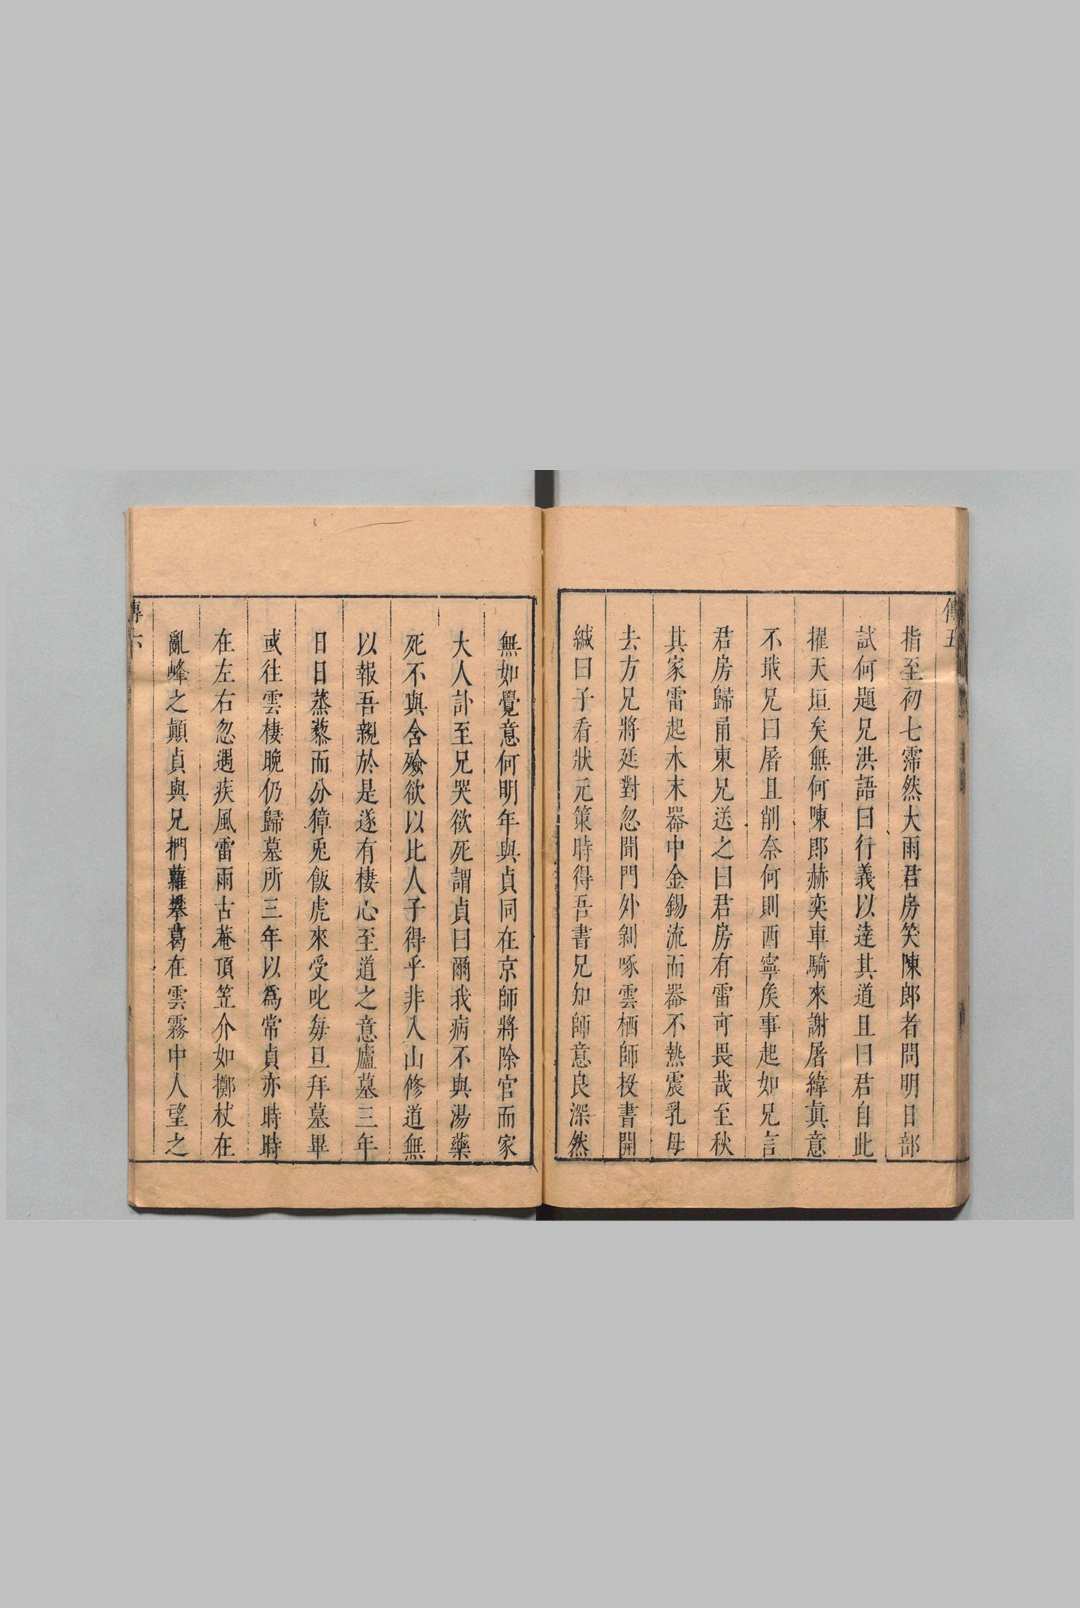 傳五
指至初七霈然大雨君房笑陳郎者問明日部
試何題兄洪語曰行義以逹其道且曰君自此
擢天垣矣無何陳郎赫奕車騎來謝屠緯眞意
不戢兄曰屠且削奈何則酉寧矦事起如兄言
君房歸甬東兄送之曰君房有雷可畏哉至秋
其家雷起木末器中金錫流而器不熱震乳母
去方兄將廷對忽聞門外剝啄雲栖師投書開
緘曰子看狀元策時得吾書兄知師意良深然
無如覺意何明年與貞同在京師將除官而家
大人訃至兄哭欲死謂貞曰爾我病不與湯藥
死不與含殮欲以比人子得乎非入山修道無
以報吾親於是遂有棲心至道之意廬墓三年
日日蒸藜而分獐兎飯虎來受叱每旦拜墓畢
或往雲棲晩仍歸墓所三年以爲常貞亦時時
在左右忽遇疾風雷雨古菴頂笠介如擲杖在
亂峰之顚貞與兄捫蘿攀葛在雲霧中人望之
傳六